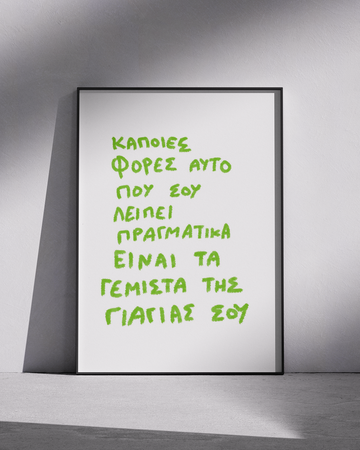 ΚΑΠΟΙΕΣ
ΦΟΡΕΣ ΑΥΤΟ
ΠΟΥ ΣΟΥ
ΛΕΙΠΕΙ
ΠΡΑΓΜΑΤΙΚΑ
ΕΙΝΑΙ ΤΑ
ΓΕΜΙΣΤΑ ΤΗΣ
ΓΙΑΓΙΑΣ ΣΟΥ